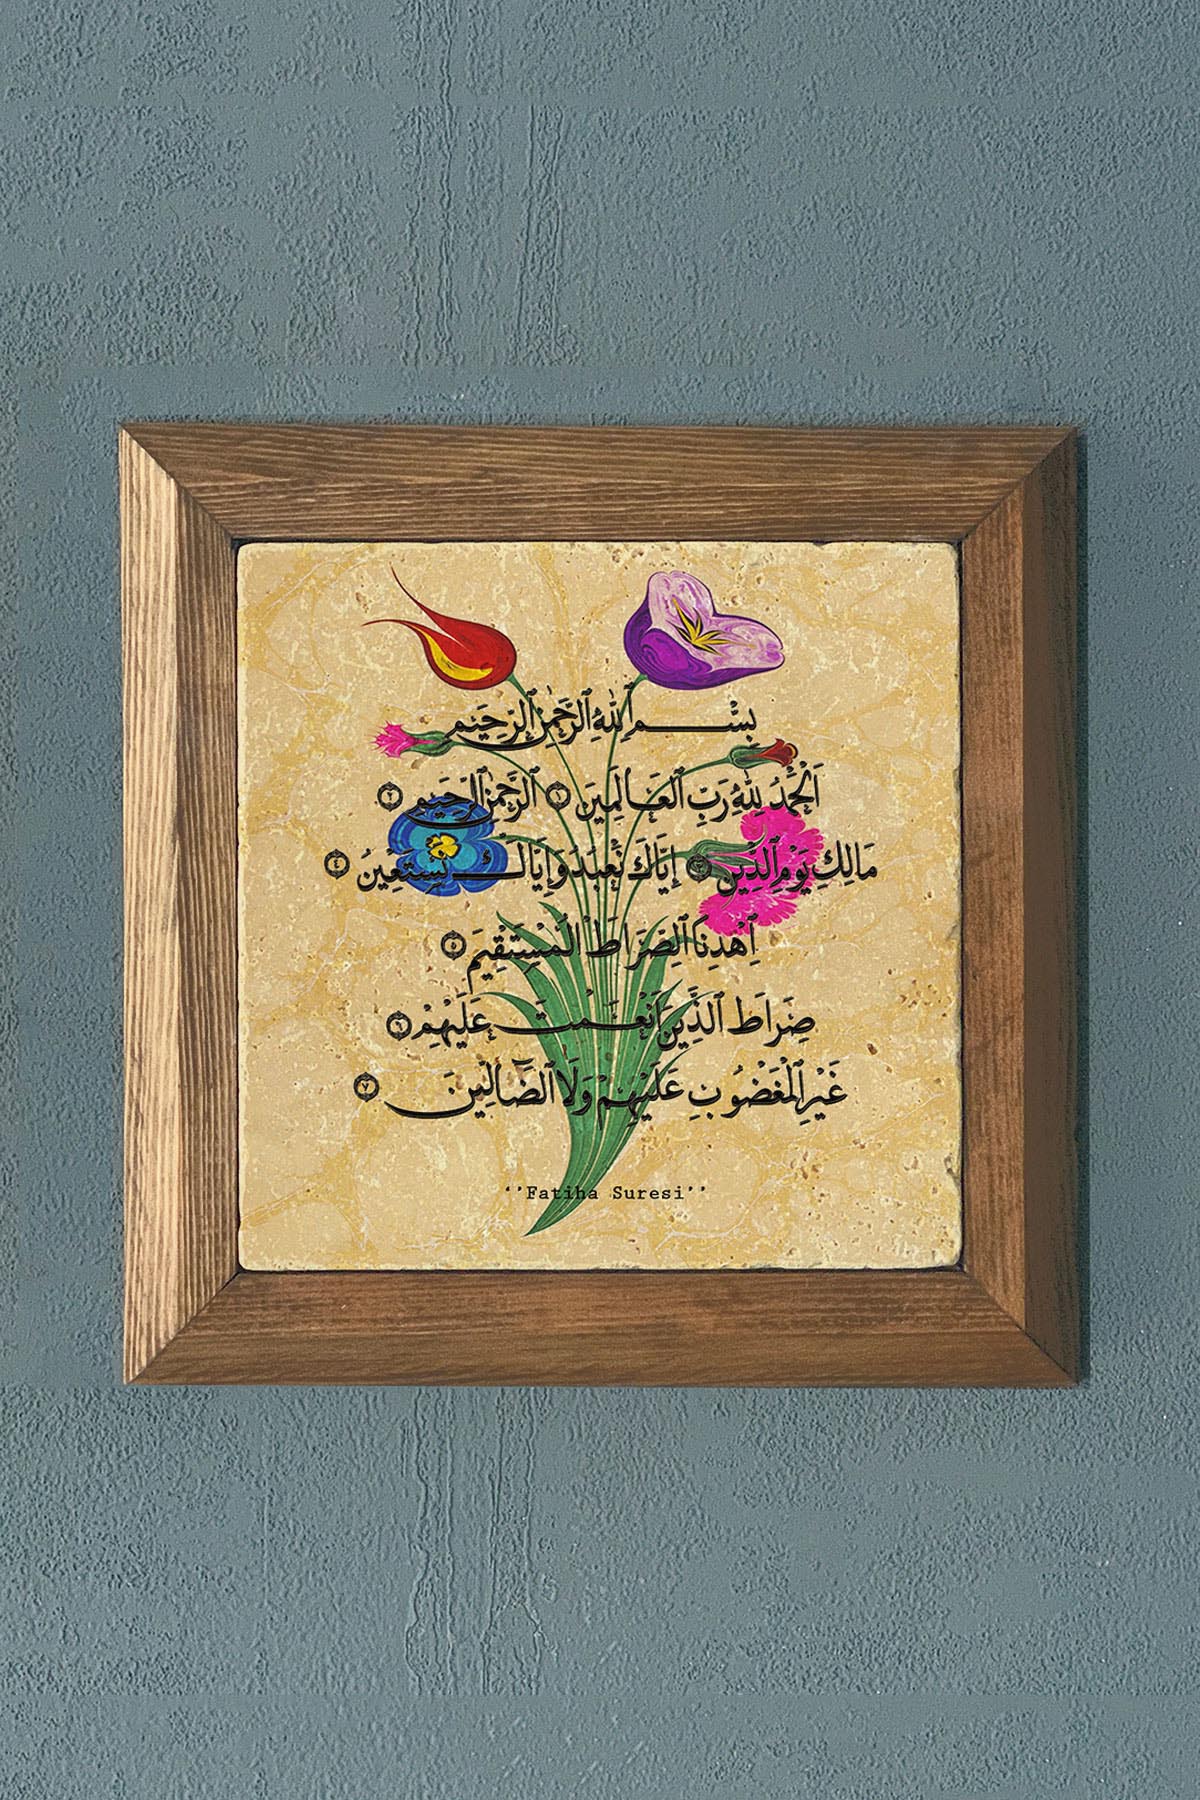 بِسْمِ ٱللهِ ٱلرَّحْمٰنِ ٱلرَّحِيمِ
اَلْحَمْدُ لِلّٰهِ رَبِّ ٱلْعَالَمِينَ ١ ٱلرَّحْمٰنِ ٱلرَّحِيمِ ٢
مَالِكِ يَوْمِ ٱلدِّينِ ٣ إِيَّاكَ نَعْبُدُ وَإِيَّاكَ نَسْتَعِينُ ٤
اِهْدِنَا ٱلصِّرَاطَ ٱلْمُسْتَقِيمَ ٥
صِرَاطَ ٱلَّذِينَ اَنْعَمْتَ عَلَيْهِمْ ٦
غَيْرِ ٱلْمَغْضُوبِ عَلَيْهِمْ وَلَا ٱلضَّآلِّينَ ٧
‘’Fatiha Suresi’’